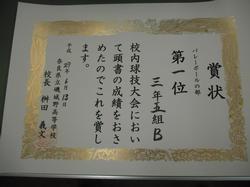 賞状
バレーボールの部
第一位
三年五組B
校内球技大会におい
て頭書の成績をおさ
めたのでこれを賞し
ます。
平成27年6月12日
奈良県立磯城野高等学校
校長 桝田義文